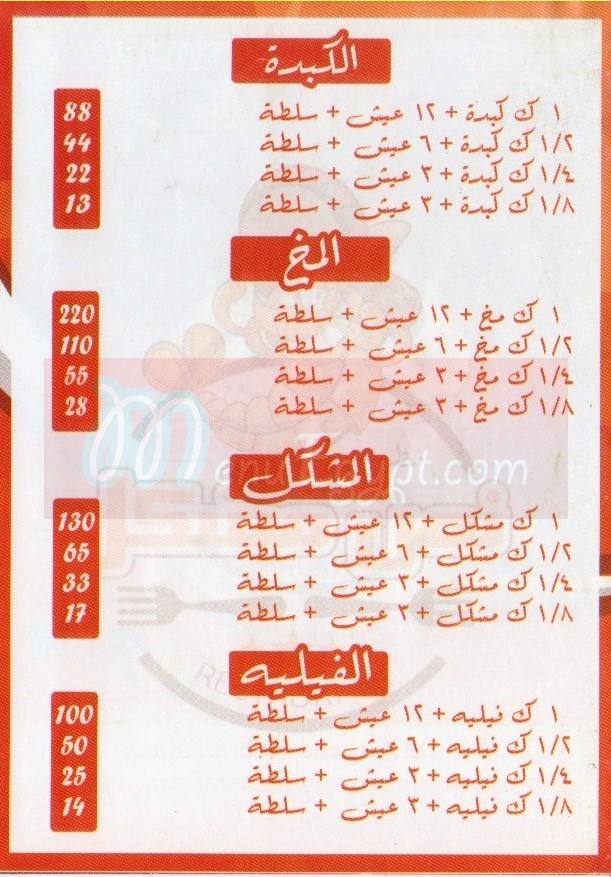 الكبدة
١ ك كبدة + ١٢ عيش + سلطة 88
١/٢ ك كبدة + ٦ عيش + سلطة 44
١/٤ ك كبدة + ٣ عيش + سلطة 22
١/٨ ك كبدة + ٣ عيش + سلطة 13
المخ
١ ك مخ + ١٢ عيش + سلطة 220
١/٢ ك مخ + ٦ عيش + سلطة 110
١/٤ ك مخ + ٣ عيش + سلطة 55
١/٨ ك مخ + ٣ عيش + سلطة 28
Menuegypt.com
المشكل
١ ك مشكل + ١٢ عيش + سلطة 130
١/٢ ك مشكل + ٦ عيش + سلطة 65
١/٤ ك مشكل + ٣ عيش + سلطة 33
١/٨ ك مشكل + ٣ عيش + سلطة 17
الفيليه
١ ك فيليه + ١٢ عيش + سلطة 100
١/٢ ك فيليه + ٦ عيش + سلطة 50
١/٤ ك فيليه + ٣ عيش + سلطة 25
١/٨ ك فيليه + ٣ عيش + سلطة 14